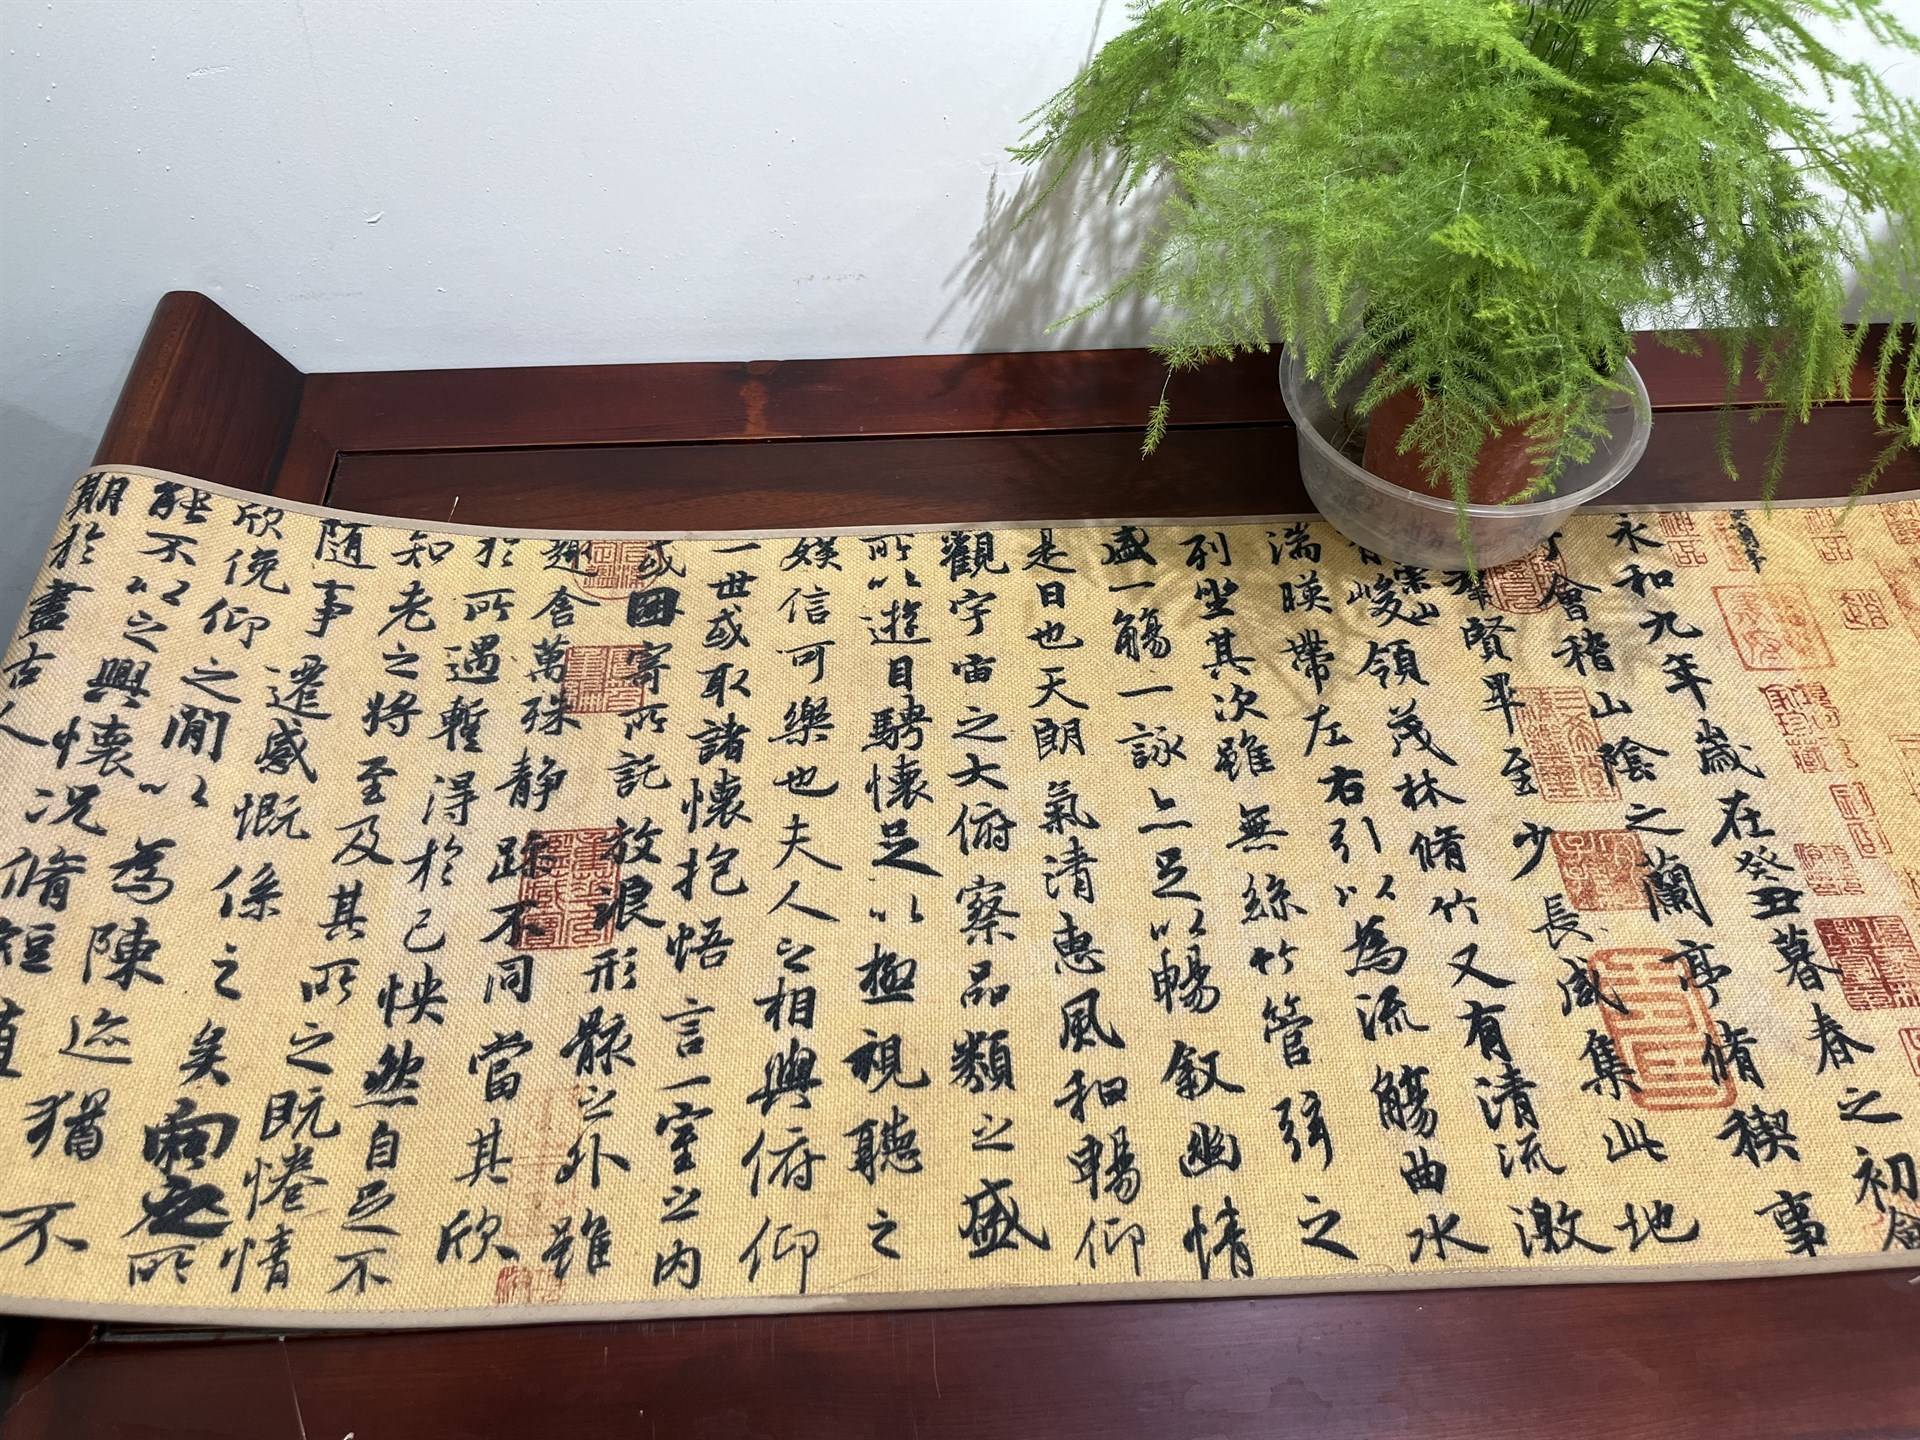 永和九年歲在癸丑暮春之初會
會稽山陰之蘭亭脩稧事
羣賢畢至少長咸集此地
崇山
有峻領茂林脩竹又有清流激
湍暎帶左右引以為流觴曲水
列坐其次雖無絲竹管弦之
盛一觴一詠亦足以暢敘幽情
是日也天朗氣清惠風和暢仰
觀宇宙之大俯察品類之盛
所以遊目騁懷足以極視聽之
娛信可樂也夫人之相與俯仰
一世或取諸懷抱悟言一室之內
或因寄所託放浪形骸之外雖
趣舍萬殊静躁不同當其欣
於所遇暫得於己怏然自足不
知老之將至及其所之既惓情
隨事遷感慨係之矣向之所
欣俛仰之閒以為陳迹猶不
能不以之興懷況脩短
期於盡古人